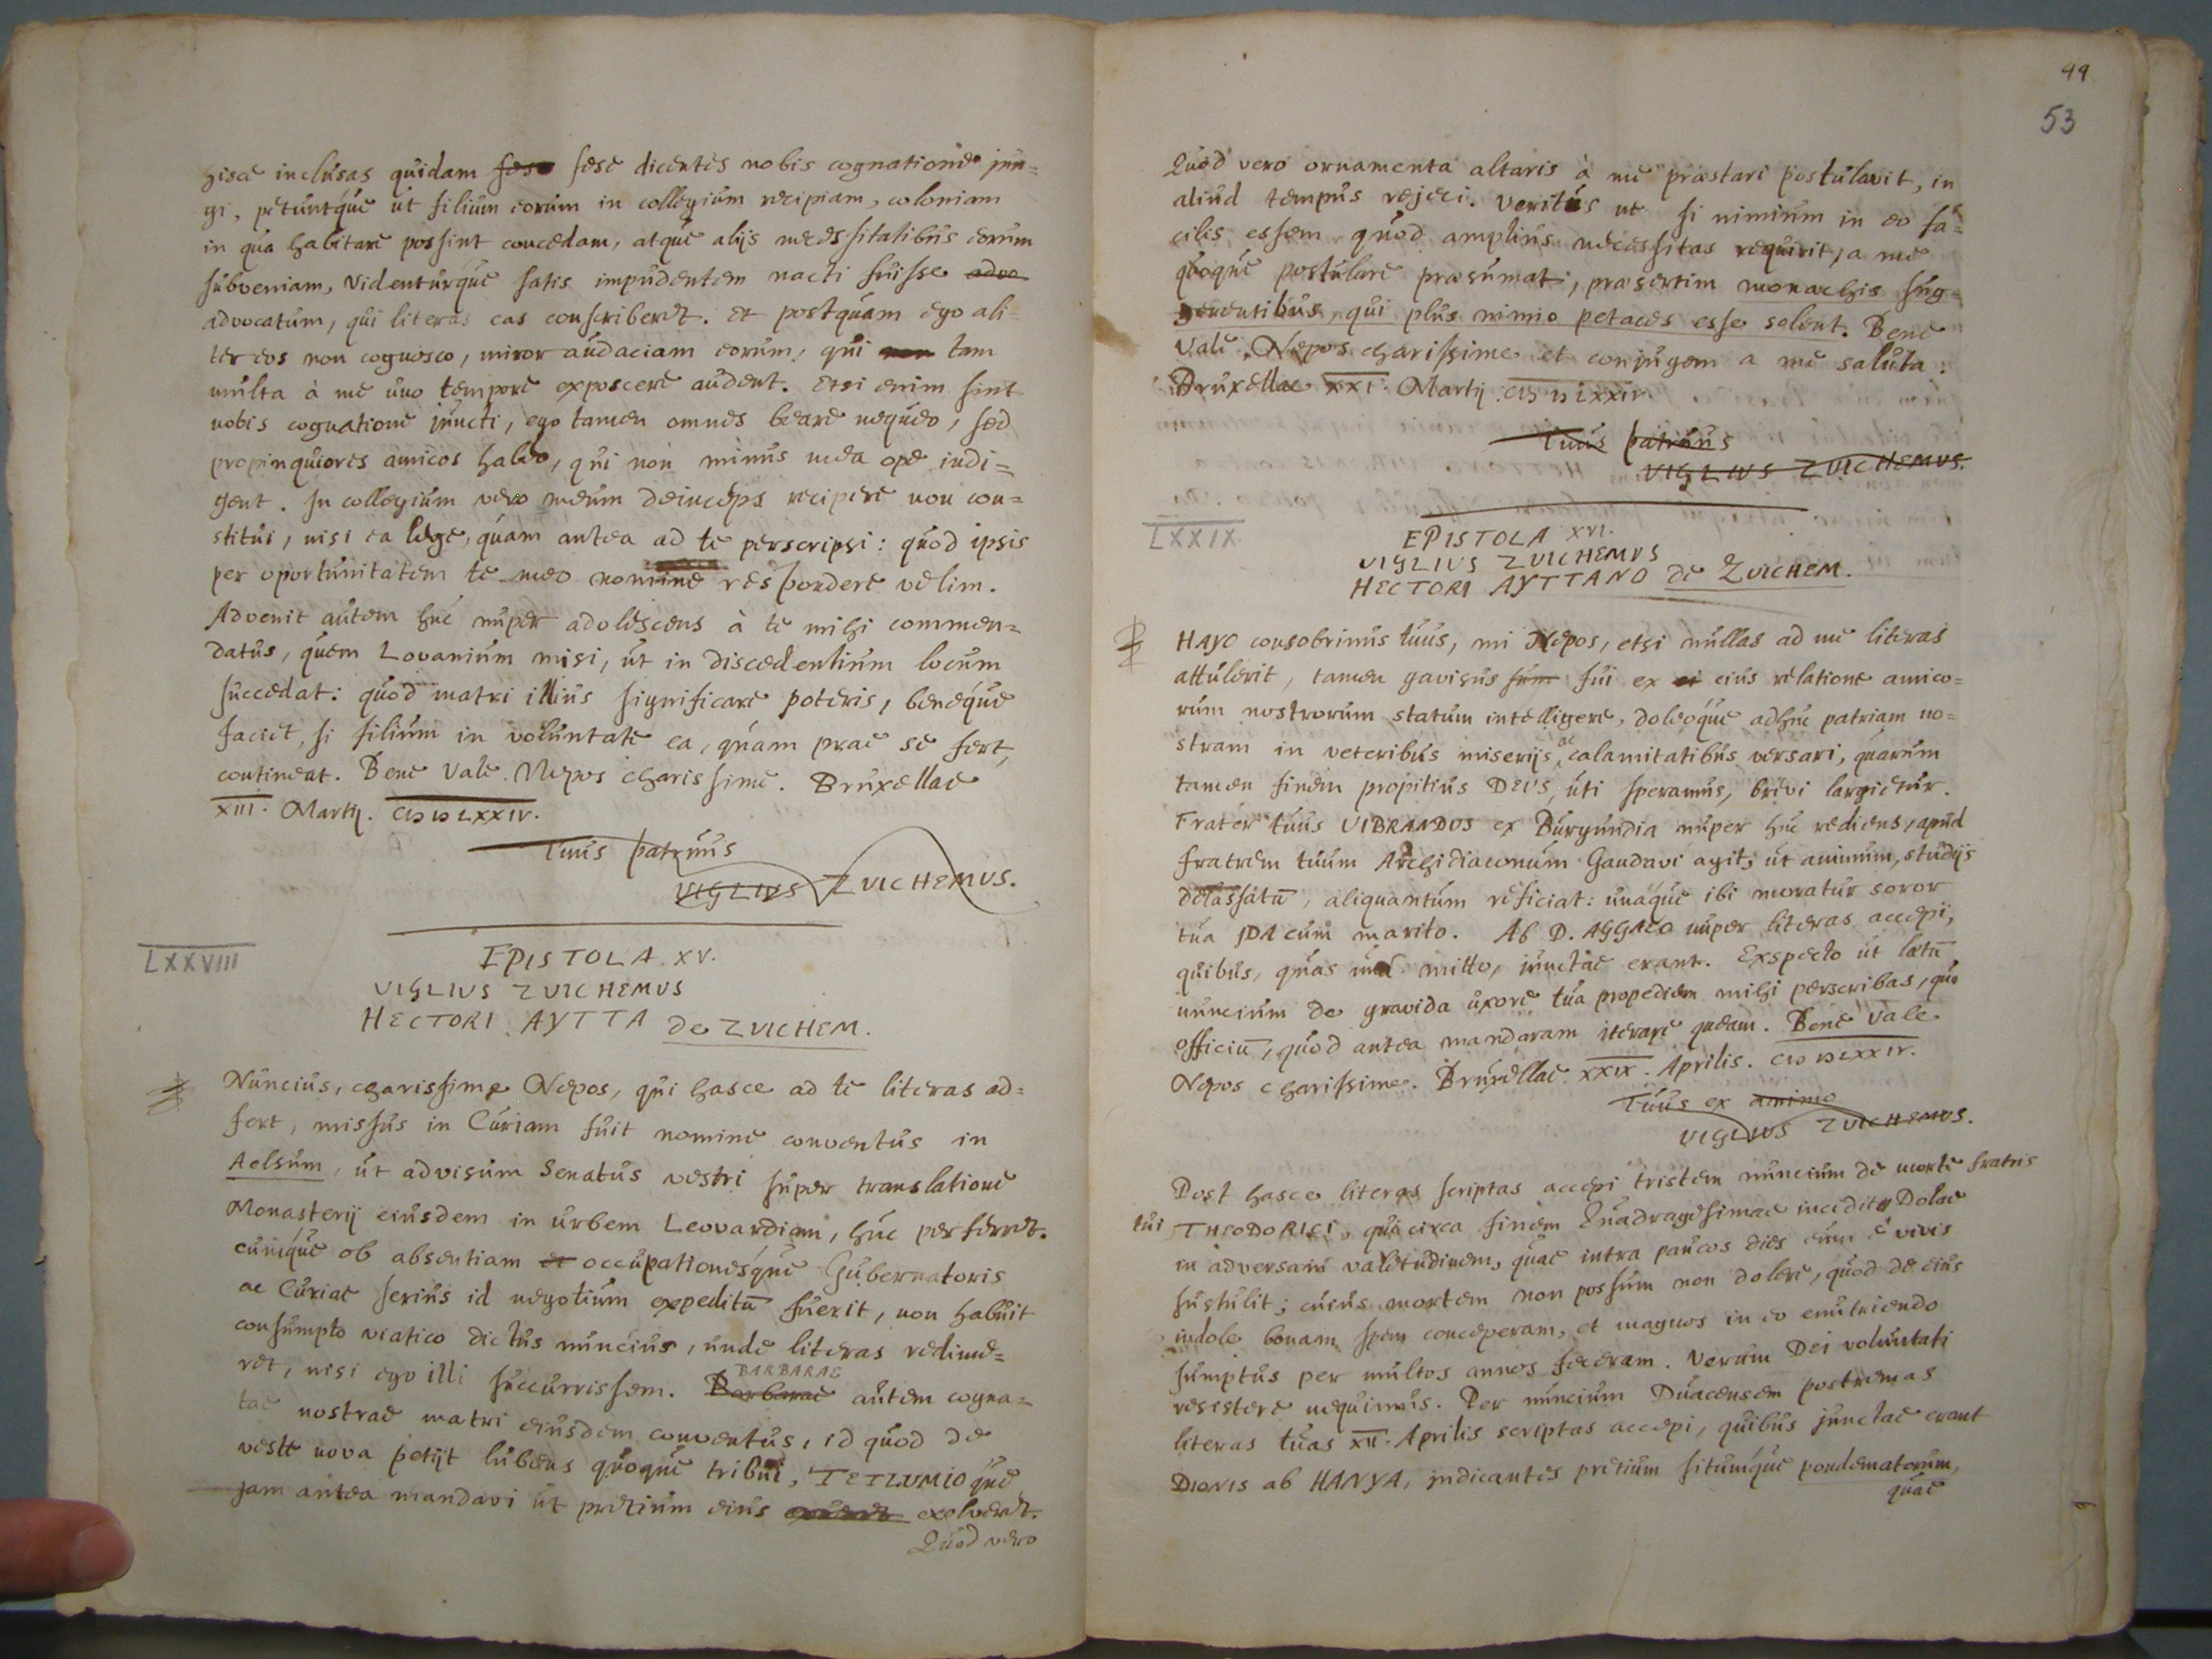 hisce inclusas quidam sese dicentes nobis cognatione jun=
gi, petuntque ut filium eorum in collegium recipiam, coloniam
in qua habitare possint concedam, atque alijs necessitatibus eorum
subveniam, Videnturque satis impudentem nacti fuisse advo
advocatum, qui literas eas conscriberet. Et postquam ego ali=
ter eos non cognosco, miror audaciam eorum, qui non tam
multa à me uno tempore exposcere audent. Etsi enim sint
nobis cognatione juncti, ego tamen omnes beare nequeo, sed
propinquiores amicos habeo, qui non minus mea ope indi=
gent. In collegium vero meum deinceps recipere non con=
stitui, nisi ea lege, quam antea ad te perscripsi: quod ipsis
per oportunitatem te meo nomine respondere velim.
Advenit autem huc nuper adolescens à te mihi commen=
datus, quem Lovanium misi, ut in discedentium locum
succedat: quod matri illius significare poteris, beneque
faciet, si filium in voluntate ea, quam prae se fert,
contineat. Bene Vale. Nepos charissime. Bruxellae
XIII. Martij. CIↃ IↃ LXXIV.
Tuus patruus
VIGLIUS ZUICHEMUS.
LXXVIII
EPISTOLA XV.
VIGLIUS ZUICHEMUS
HECTORI AYTTA de ZUICHEM.
Nuncius, charissime Nepos, qui hasce ad te literas ad=
fert, missus in Curiam fuit nomine conventus in
Aelsum, ut advisum Senatus vestri super translatione
Monasterij eiusdem in urbem Leovardiam, huc perferret.
cumque ob absentiam et occupationesque Gubernatoris
ac Curiae serius id negotium expeditū fuerit, non habuit
consumpto viatico dictus nuncius, unde literas redime=
ret, nisi ego illi succurrissem. Barbarae BARBARAE autem cogna=
tae nostrae matri eiusdem conventus, id quod de
veste nova petijt lubens quoque tribui, TETLUMIO que
jam antea mandavi ut pretium eius exolveret.
Quod vero
44
53
Quod vero ornamenta altaris à me praestari postulavit, in
aliud tempus rejeci. Veritus ne si nimium in eo fa=
cilis essem quod amplius necessitas requirit, a me
quoque postulare praesumat, praesertim monachis sug=
gerentibus, qui plus nimio petaces esse solent. Bene
Vale, Nepos charissime et conjugem a me saluta.
Bruxellae XXI. Martij CIↃ IↃ LXXIV.
Tuus patruus
VIGLIUS ZUICHEMUS.
LXXIX
EPISTOLA XVI.
VIGLIUS ZUICHEMUS
HECTORI AYTTANO de ZUICHEM.
HAYO consobrinus tuus, mi Nepos, etsi nullas ad me literas
attulerit, tamen gavisus sum fui ex ei eius relatione amico=
rum nostrorum statum intelligere, doleoque adhuc patriam no=
stram in veteribus miserijs ac calamitatibus versari, quarum
tamen finem propitius DEUS, uti speramus, brevi largietur.
Frater tuus VIBRANDUS ex Burgundia nuper huc rediens, apud
fratrem tuum Archidiaconum Gandavi agit, ut animum, studijs
delassatū, aliquantum reficiat: unaque ibi moratur soror
tua IDA cum marito. Ab D. AGGAEO nuper literas accepi,
quibus, quas una mitto, junctae erant. Exspecto ut laetū
nuncium de gravida uxore tua propediem mihi perscribas, quo
officiū, quod antea mandaram iterare queam. Bene Vale.
Nepos charissime. Bruxellae XXIX. Aprilis. CIↃ IↃ LXXIV.
Tuus ex animo
VIGLIUS ZUICHEMUS.
Post hasce literas scriptas accepi tristem nuncium de morte fratris
tui THEODORICI, qui circa finem Quadragesimae incidit Dolae
in adversam valetudinem, quae intra paucos dies eum è vivis
sustulit; cuius mortem non possum non dolere, quod de eius
indole bonam spem conceperam, et magnos in eo enutriendo
sumptus per multos annos feceram. Verum Dei voluntati
resistere nequimus. Per nuncium Duacensem postremas
literas tuas XII. Aprilis scriptas accepi, quibus junctae erant
DIONIS ab HANYA, indicantes pretium situmque pondematorum,
quae